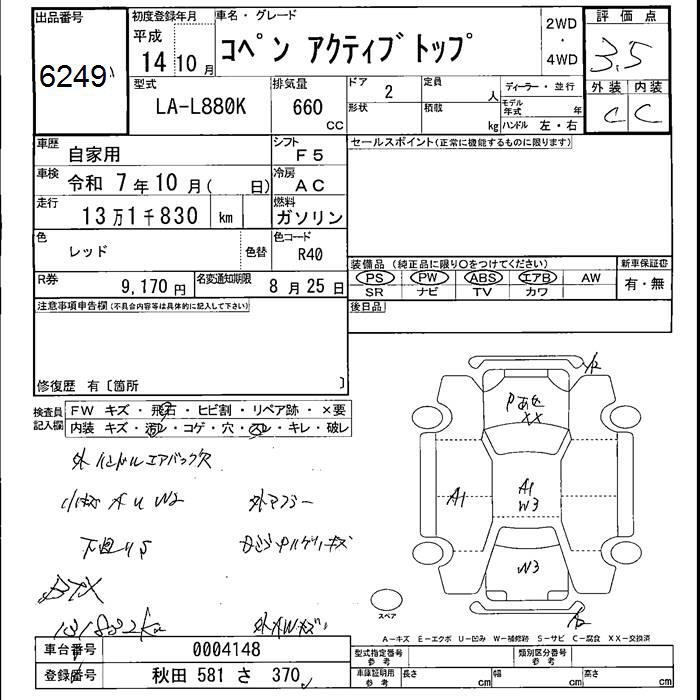 出品番号
6249
初度登録年月
平成
14 10 月
車名・グレード
コペン アクティブトップ
2WD
・
4WD
評価点
3.5
外装 内装
C C
型式
LA-L880K
排気量
660
CC
ドア
2
形状
定員
人
積載
kg
ディーラー・並行
モデル
年式
年
ハンドル 左・右
車歴
自家用
シフト
F5
セールスポイント(正常に機能するものに限ります)
車検
令和 7年10月( 日)
冷房
AC
走行
13万1千830 km
燃料
ガソリン
色
レッド
色替
色コード
R40
装備品 (純正品に限り○をつけてください)
PS PW ABS エアB AW
SR ナビ TV カワ
新車保証書
有・無
R券
9,170円
名変通知期限
8月25日
後日品
注意事項申告欄(不具合内容等は具体的に記入して下さい)
修復歴 有〔箇所 〕
検査員
記入欄
FW キズ・飛石・ヒビ割・リペア跡・×要
内装 キズ・汚レ・コゲ・穴・スレ・キレ・破レ
外ハンドルエアバック欠
外マフラー
Pあせ
XX
A1
A1
W3
W3
スペア
A―キズ E―エクボ U―凹み W―補修跡 S―サビ C―腐食 XX―交換済
車台番号
0004148
登録番号
秋田 581 さ 370
型式指定番号
参考
類別区分番号
参考
車庫証明用
参考
長さ
cm
幅
cm
高さ
cm